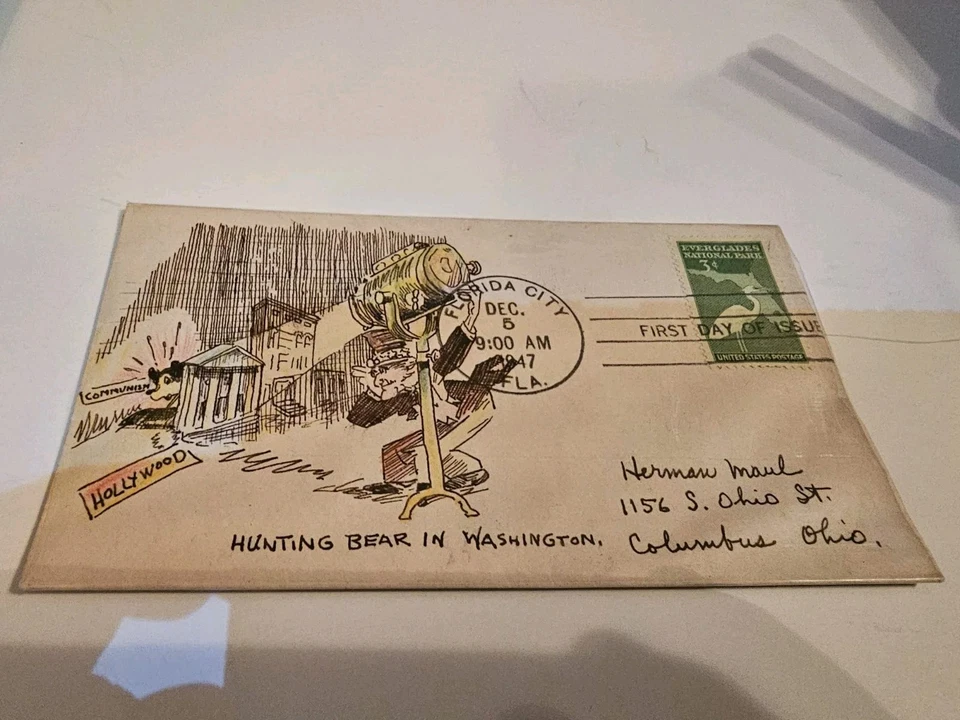 EVERGLADES
NATIONAL PARK
3¢
UNITED STATES POSTAGE
FIRST DAY OF ISSUE
FLORIDA CITY
DEC.
5
9:00 AM
1947
FLA.
COMMUNISM
HOLLYWOOD
HUNTING BEAR IN WASHINGTON.
Herman Maul
1156 S. Ohio St.
Columbus Ohio.